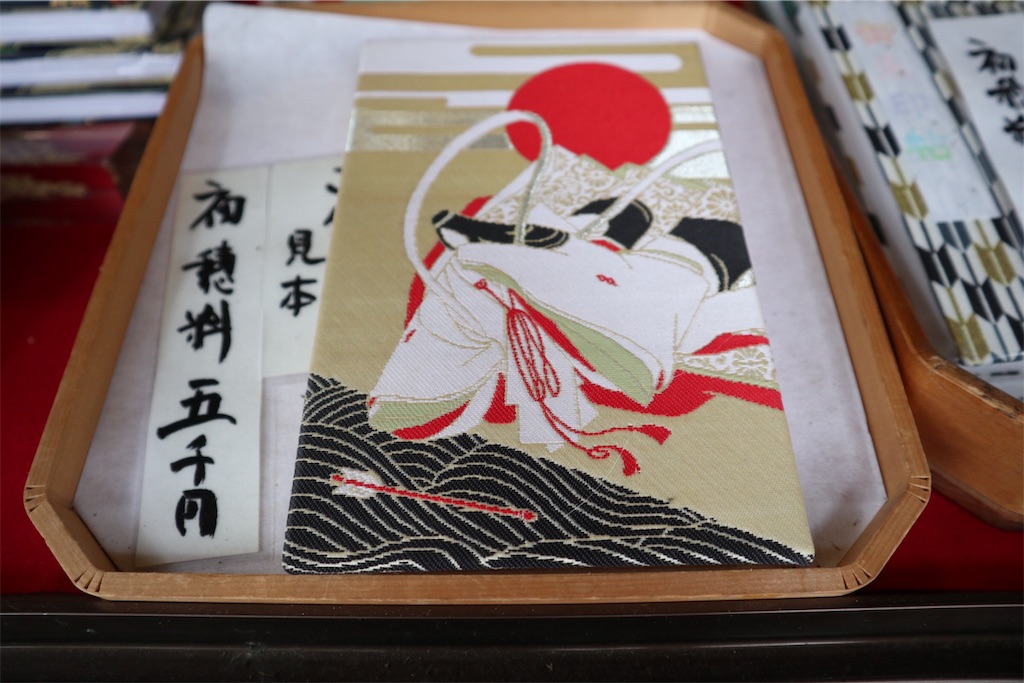 初穂料 五千円
見本
初穂料